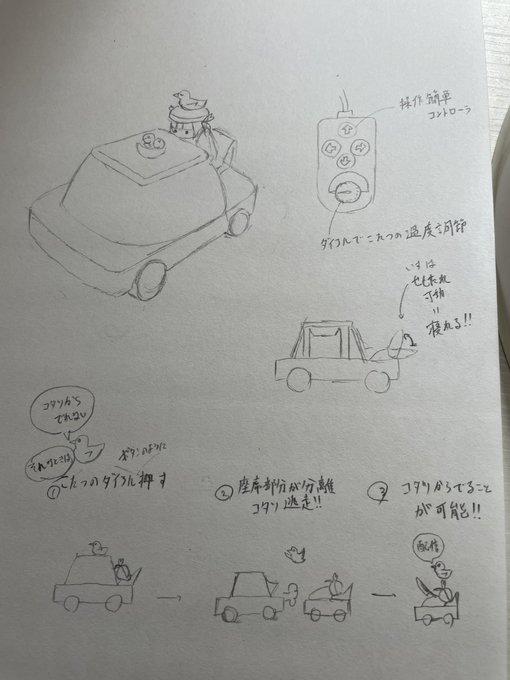 操作簡単
コントローラ
ダイヤルでこたつの温度調節
いすは
せもたれ
可動
=
寝れる!!
コタツから
でれない
それならこれは
ボタンのように
①こたつのダイヤル押す
② 座席部分が分離
コタツ逃走!!
③ コタツからでること
が可能!!
配信